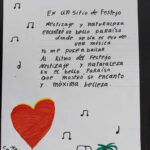 En un sitio de festejo
Mestizaje y naturaleza
encontré un bello paraíso
donde se oía el eco de
una música
Yo me puse a bailar
Al ritmo del festejo
Mestizaje y naturaleza
en el bello paraíso
que mostró su encanto
y máxima belleza.